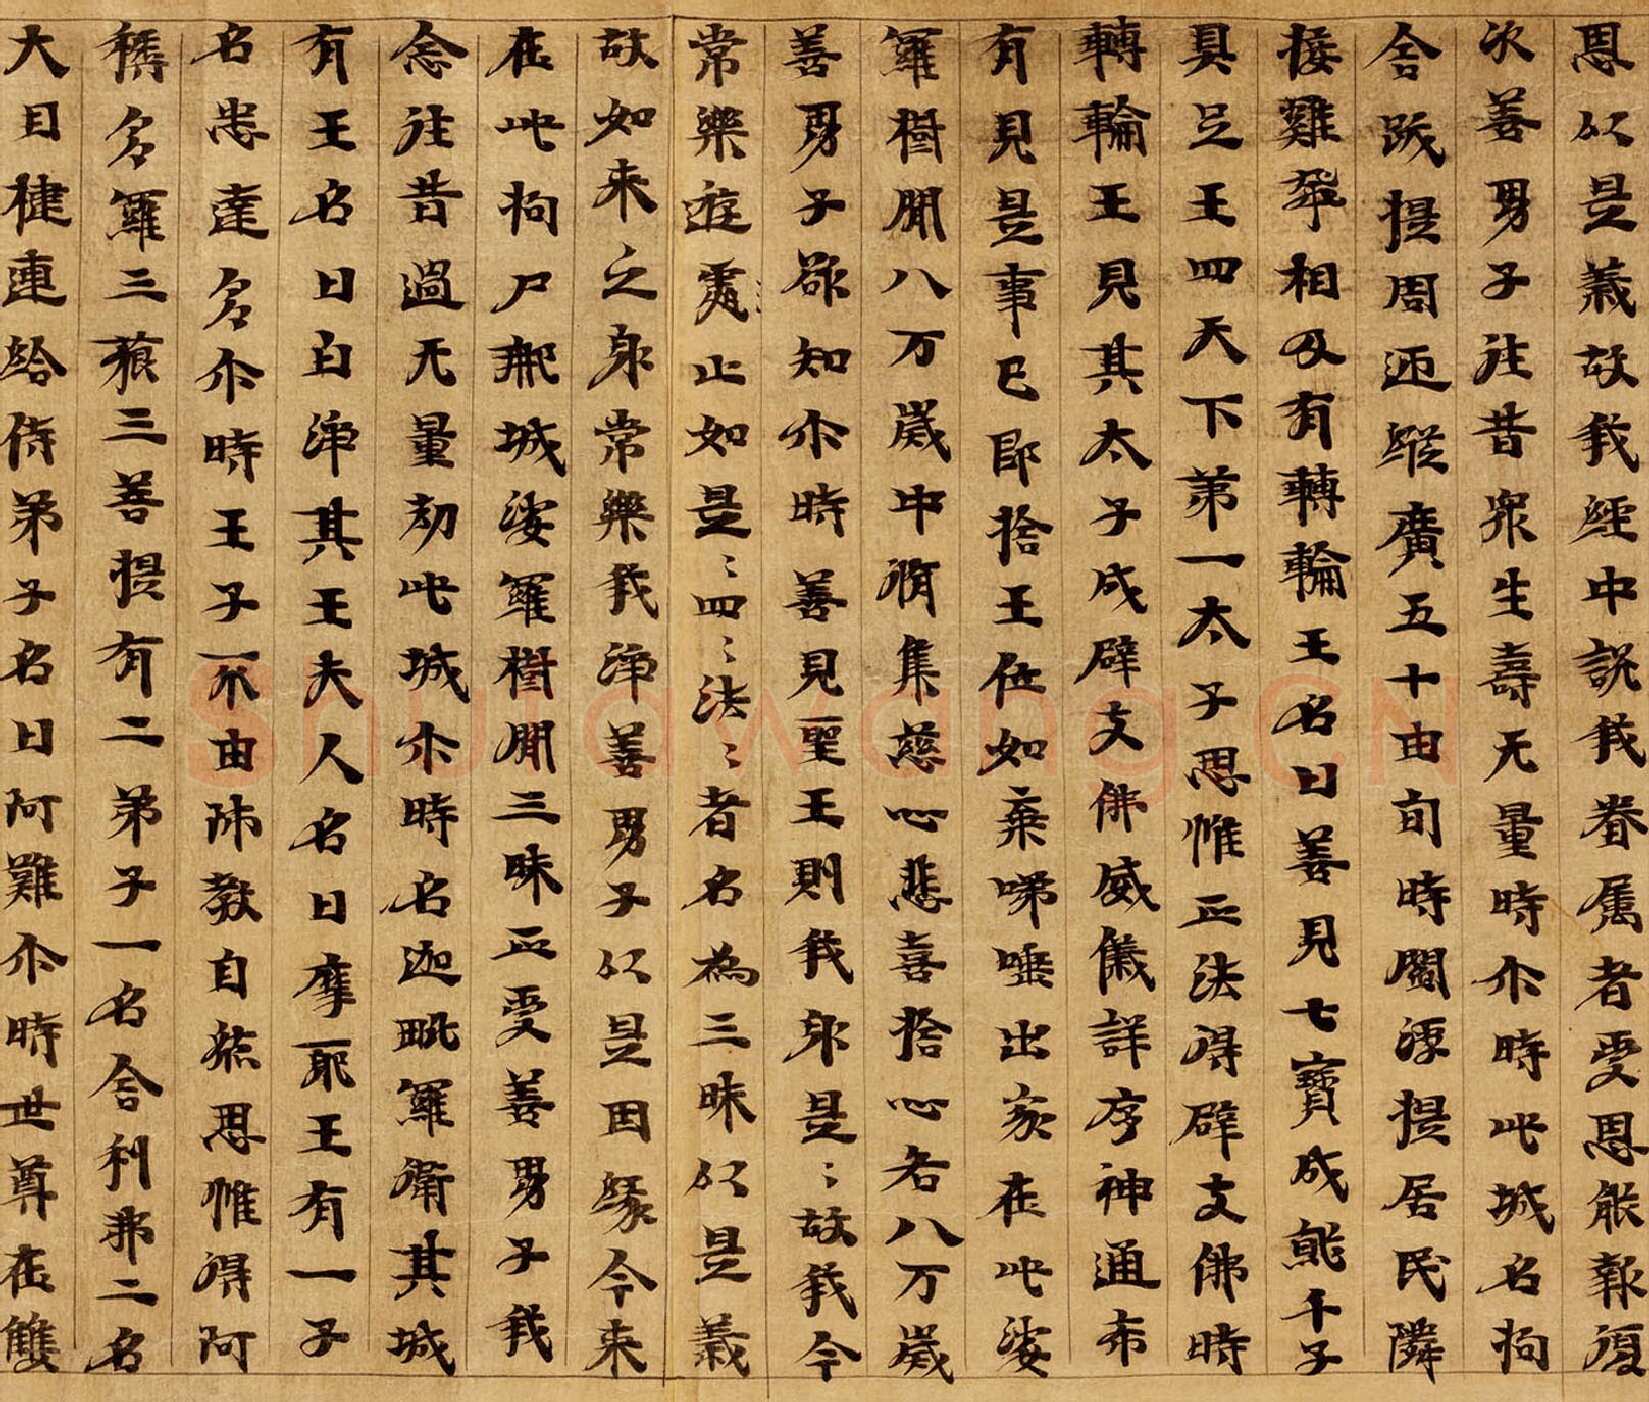 恩以是義故我經中說我眷屬者受恩能報復
次善男子往昔眾生壽无量時尒時此城名拘
舍跋提周迊縱廣五十由旬時閻浮提居民隣
接雞飛相及有轉輪王名曰善見七寶成就千子
具足王四天下第一太子思惟正法得辟支佛時
轉輪王見其太子成辟支佛威儀詳序神通希
有見是事已即捨王位如棄唾出家在此娑
羅樹間八万歲中脩集慈心悲喜捨心各八万歲
善男子欲知尒時善見聖王則我身是〻故我今
常樂遊處止如是〻四〻法〻者名為三昧以是義
故如来之身常樂我淨善男子以是因緣今来
在此拘尸那城娑羅樹間三昧正受善男子我
念往昔過无量劫此城尒時名迦毗羅衛其城
有王名曰白淨其王夫人名曰摩耶王有一子
名悉達多尒時王子不由師教自然思惟得阿
耨多羅三藐三菩提有二弟子一名舍利弗二名
大目揵連給侍弟子名曰阿難尒時世尊在雙
Shufawang.CN